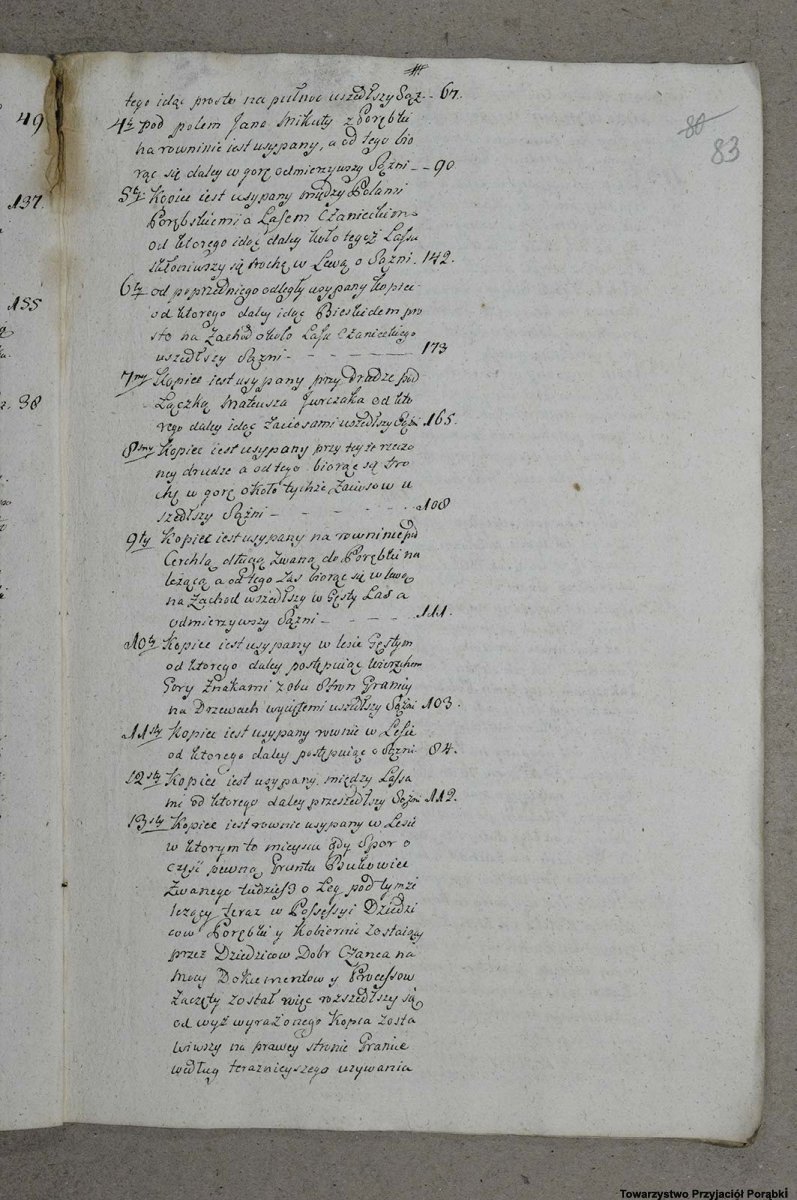 49
137.
155
38
80
83
tego idąc prosto na pułnoc uszedłszy Sąż - 67.
4ty pod polem Jana Mikuty z Porębki
na rowninie iest usypany, a od tego bio
rąc się daley w gorę odmierzywszy Sążni - - 90
5ty Kopiec iest usypany między Polami
Porębskiemi a Lasem Czanieckim
od ktorego idąc daley koło tegoż Lassu
skłoniwszy są trochę w Lewą o Sążni. 142.
6ty od poprzedniego odległy usypany kopiec
od ktorego daley idąc Bieskidem pro
sto na Zachod około Lasu Czanieckiego
uszedłszy Sążni - - - - 173
7my Kopiec iest usypany przy Drudze pod
Łączką Mateusza Jurczaka od kto
rego daley idąc zaciosami uszedłszy Sążni 165.
8smy Kopiec iest usypany przy teyże rzeczo
ney drudze a od tego biorąc są tro
chę w gorę około tychże zaciosow u
szedłszy Sążni - - - - 108
9ty Kopiec iest usypany na rowninie pod
Cerchlą długą zwaną do Porębki na
leżącą a od tego zas biorąc się w lewą
na Zachod wszedłszy w Gęsty Las a
odmierzywszy Sążni - - - - 111.
10ty Kopiec iest usypany w lesie Gęstym
od ktorego daley postępuiąc wierzchem
Gory Znakami z obu Stron Granicy
na Drzewach wyciętemi uszedłszy Sążni 103.
11sty Kopiec iest usypany rownie w Lesie
od ktorego daley postępuiąc o Sążni 84.
12sty Kopiec iest usypany między Lassa
mi od ktorego daley przeszedłszy Sążni 112.
13sty Kopiec iest rownie usypany w Lesie
w ktorym to mieyscu gdy Spor o
częsć pewną Gruntu Bukowiec
Zwanego tudziesz o Łęg pod tymże
leżący teraz w Possessyi Dziedzi
cow Porębki y Kobiernic zostaiący
przez Dziedzicow Dobr Czanca na
mocy Dokumentow y Processow
zaczęty został więc rozszedłszy są
od wyż wyrażonego Kopca zosta
wiwszy na prawey stronie Granice
według teraznieyszego uzywania
Towarzystwo Przyjaciół Porąbki